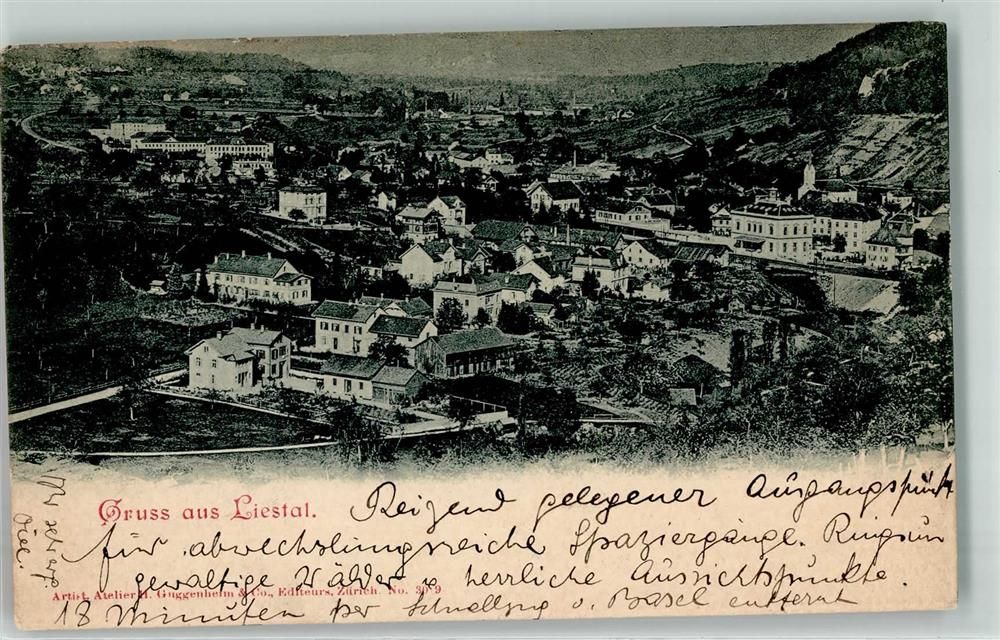 Gruss aus Liestal.
Reizend gelegener Ausgangspunkt
für abwechslungsreiche Spaziergänge. Ringsum
gewaltige Wälder & herrliche Aussichtspunkte.
Artist. Atelier H. Guggenheim & Co., Editeurs, Zürich. No. 30 9
18 Minuten per Schnellzug v. Basel entfernt